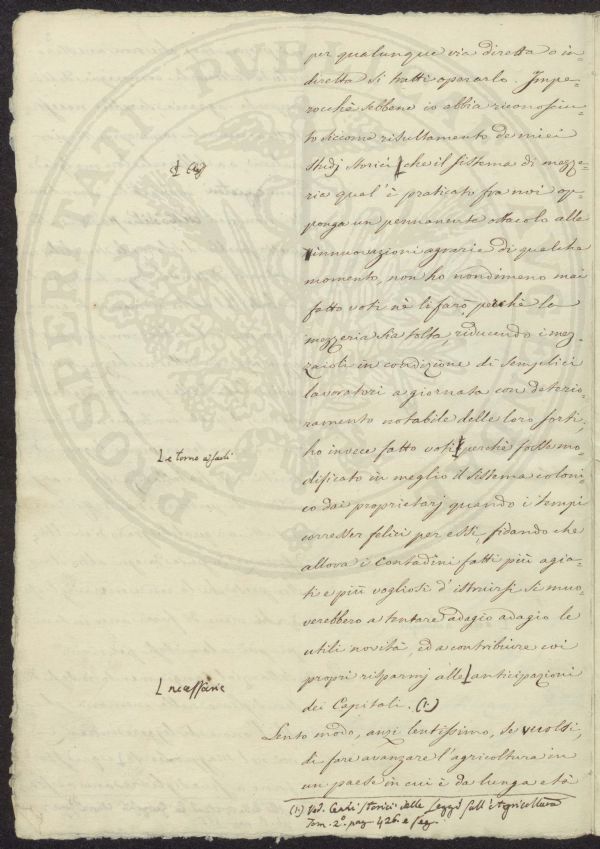 per qualunque via diretta o in-
diretta si tratti operarlo. Impe-
rocchè sebbene io abbia riconosciu-
to siccome risultamento de miei
studj storici che il sistema di mezze-
ria qual'è praticato fra noi op-
ponga un permanente ostacolo alle
innuovazioni agrarie di qualche
momento, non ho nondimeno mai
fatto voti nè li farò perchè la
mezzeria sia tolta, riducendo i mez-
zaioli in condizione di semplici
lavoratori a giornata con deterio-
ramento notabile delle loro sorti;
ho invece fatto voti perchè fosse mo-
L e torno a farli
dificato in meglio il sistema coloni-
co dai proprietarj quando i tempi
corresser felici per essi, fidando che
allora i Contadini fatti più agia-
ti e più vogliosi d'istruirsi si muo-
verebbero a tentare adagio adagio le
utili novità, ed a contribuire coi
propri risparmj alle anticipazioni
L necessarie
dei Capitali. (1.)
Lento modo, anzi lentissimo, se vuolsi,
di fare avanzare l'agricoltura in
un paese in cui è da lunga età
(1.) Ved. Cenni storici delle Leggi sull'Agricoltura
Tom. 2.° pag. 426. e seg.
PROSPERITATI PVBL